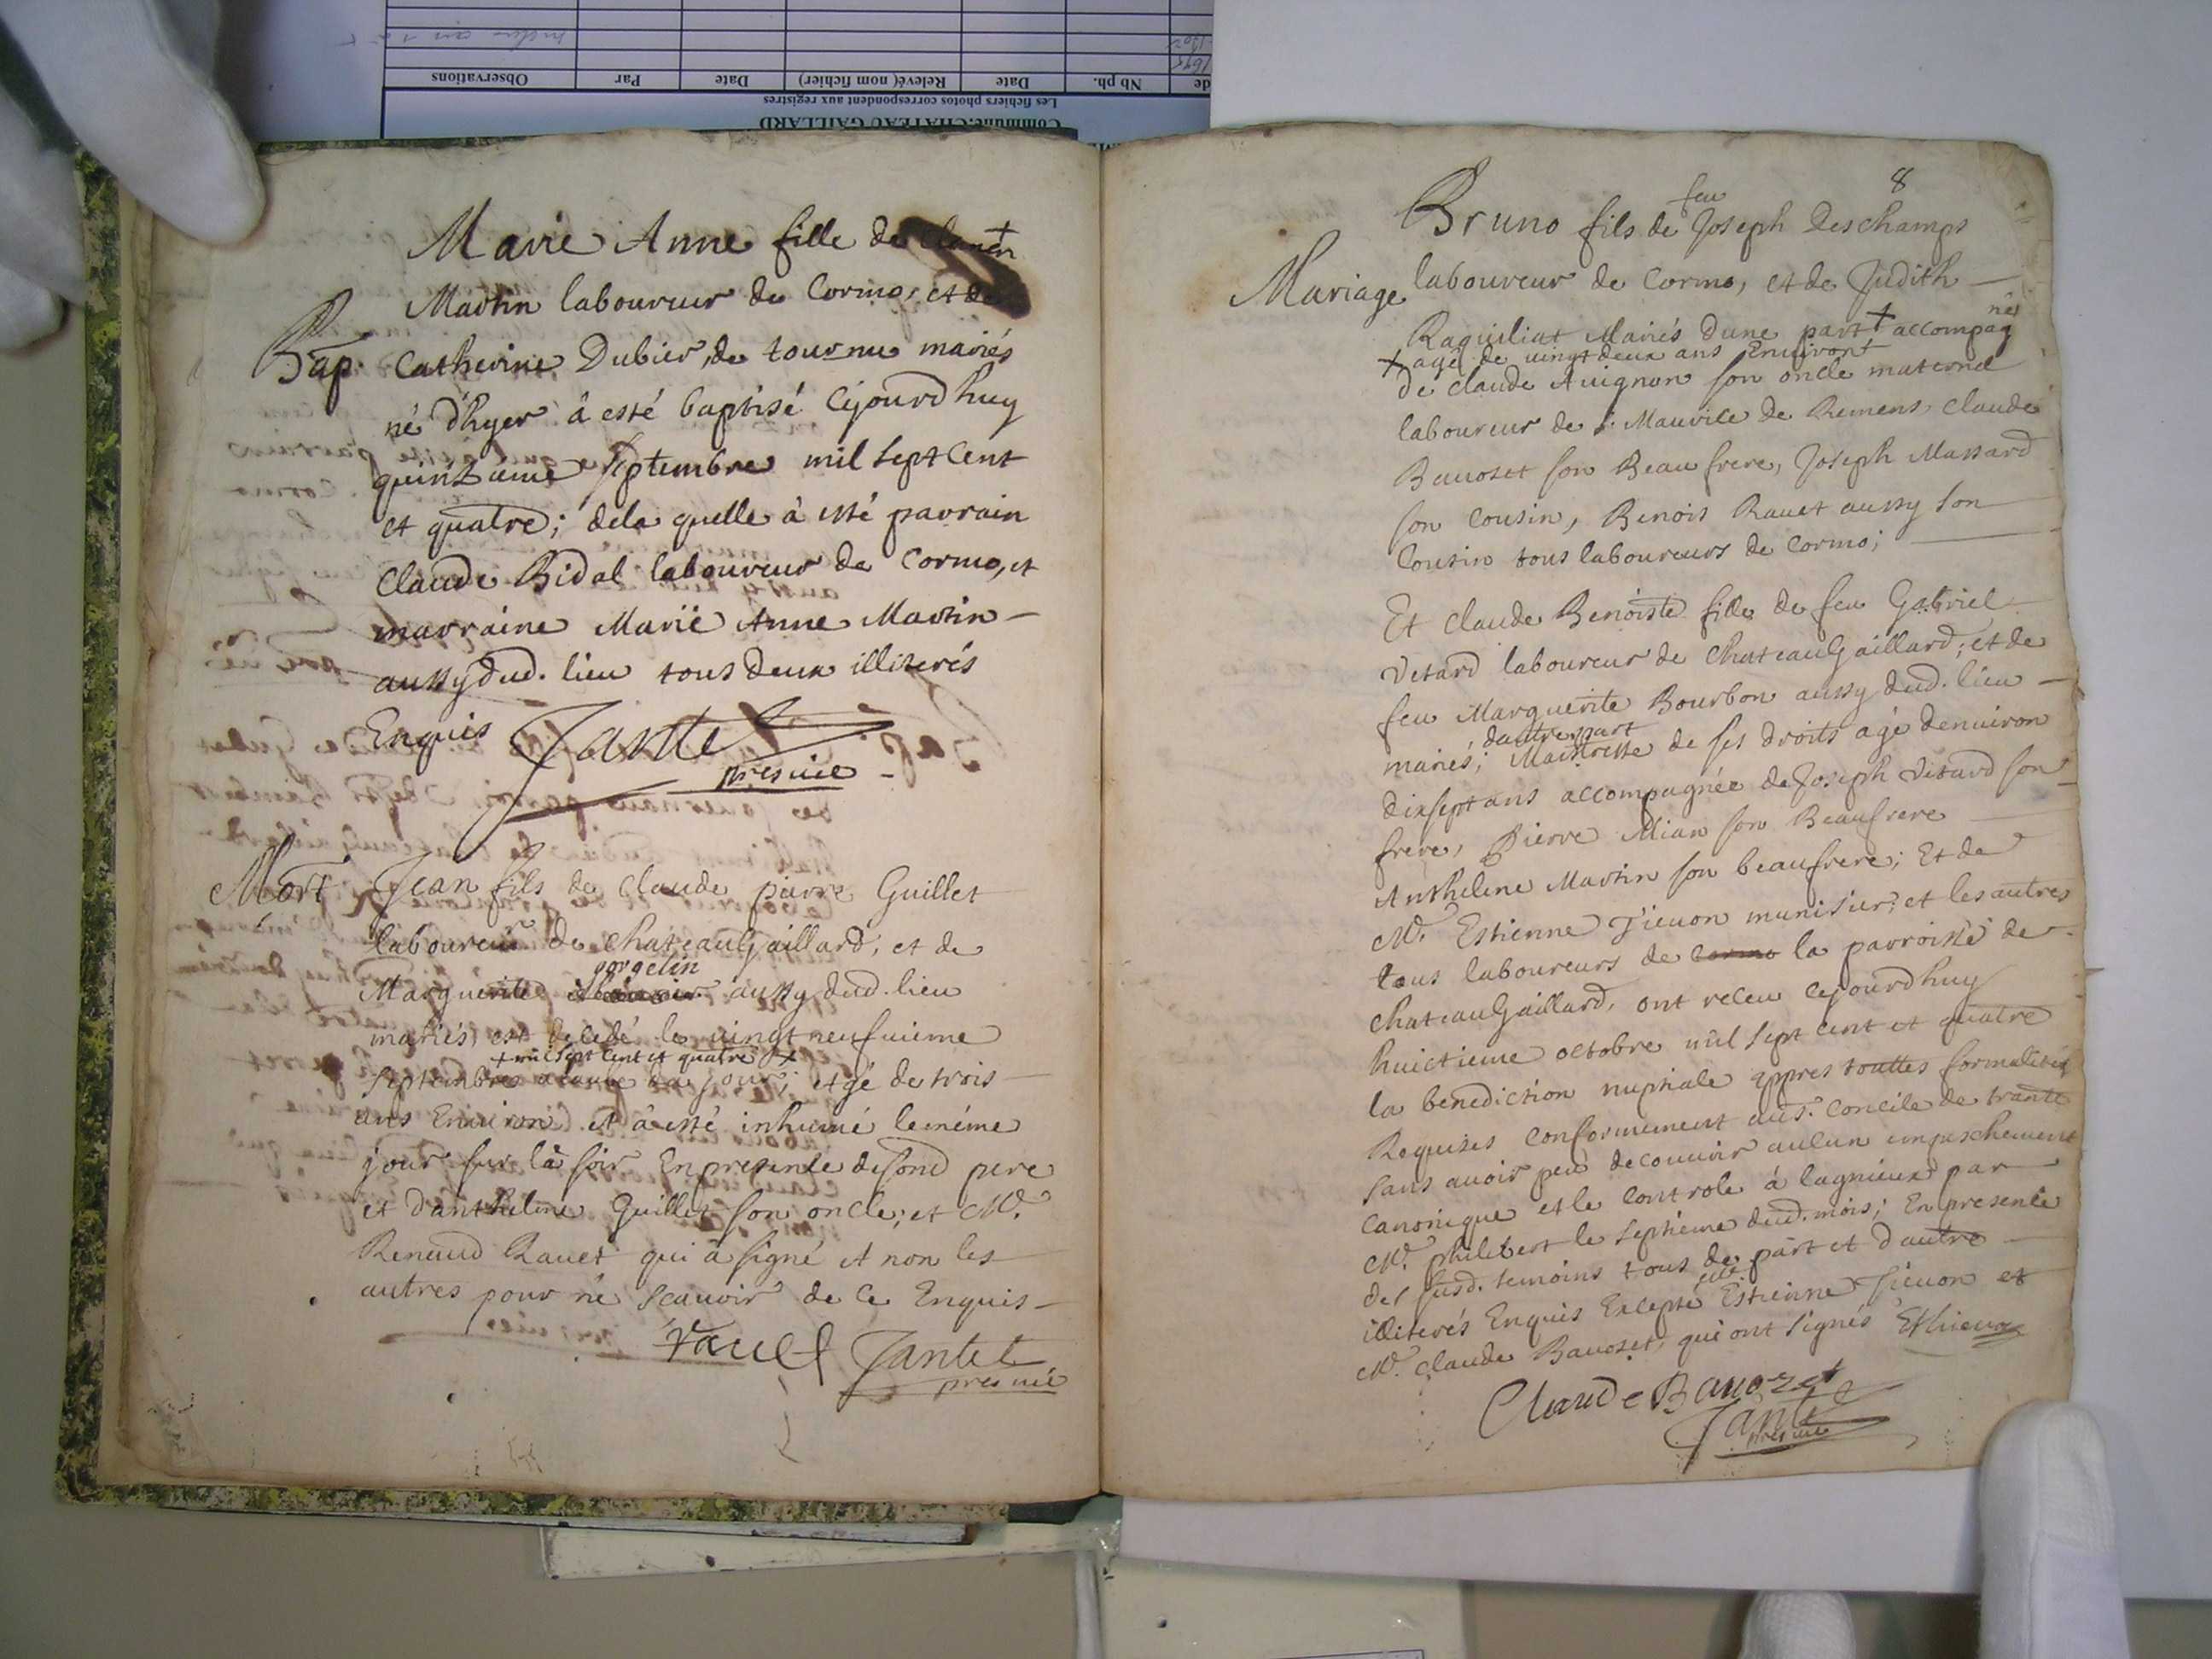 Commune: CHATEAU GAILLARD
Les fichiers photos correspondent aux registres
de Nb ph. Date Relevé( nom fichier) Date Par Observations
Marie Anne fille de
Martin laboureur de Cormo, et de
Bap. Catherine Dubier, de tournu mariés
né d'hyer à esté baptisé cejourdhuy
quinzieme septembre mil sept cent
et quatre; dela quelle à esté parrain
Claude Bidal laboureur de Cormo, et
marraine Marie Anne Martin
aussy dud. lieu tous deux illiterés
Enquis Jantet
pres vic
Mort Jean fils de Claude pierre Guillet
laboureur de chateauGaillard; et de
gorgelin
Marguerite aussy dud. lieu
mariés est decedé le vingt neufuieme
+ mil sept cent et quatre +
septembre a laube du jour; agé de trois
ans Environ et à esté inhumé le méme
jour sur la soir En presence de sond pere
et danthelme Guillet son oncle; et Mr.
Renaud Ravet qui à signé et non les
autres pour ne scauoir de ce Enquis
ravet Jantet
pres vic
8
feu
Bruno fils de Joseph Deschamps
Mariage laboureur de Cormo, et de Judith
né
Raquiliat Mariés dune part + accompag
+ agé de vingt deux ans Enuiront
de claude Auignon son oncle maternel
laboureur de s. Maurice de Remens, claude
Bauozet son Beau frere, Joseph Massard
son Cousin, Benois Rauet aussy son
Cousin tous laboureurs de Cormo;
Et claude Benoiste fille de feu Gabriel
Vetard laboureur de ChateauGaillard; et de
feu Marguerite Bourbon aussy dud. lieu
dautre part
mariés; Maistresse de ses droits agé denuiron
dixsept ans accompagnée de Joseph Vetard son
frere, Pierre Mian son Beaufrere
Anthelme Martin son beaufrere; Et de
Mr. Estienne Tieuon munisier; et les autres
tous laboureurs de cormo la parroisse de
chateauGaillard, ont receu cejourdhuy
huictieme octobre mil sept cent et quatre
la benediction nuptiale appres touttes formalités
Requises conformement au s. Concile de trante
sans auoir peu decouurir aulcun empeschement
canonique et le controle à lagnieux par
Mr. philibert le septieme dud. mois; En presence
des susd. temoins tous de part et dautre
illiterés Enquis Excepté Estienne Tieuon et
Mr. Claude Bauozet, qui ont signés EThieuon
Claude Bauozet
Jantet
pres vic